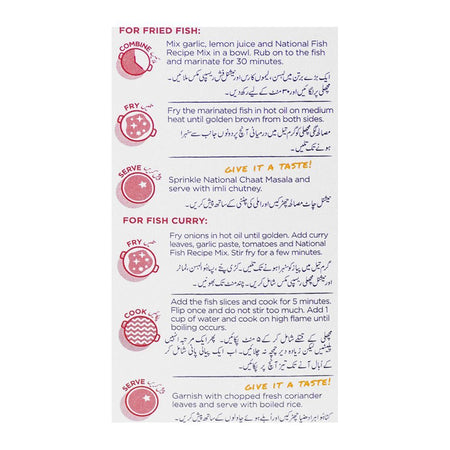 FOR FRIED FISH:
COMBINE
Mix garlic, lemon juice and National Fish
Recipe Mix in a bowl. Rub on to the fish
and marinate for 30 minutes.
ایک بڑے برتن میں لہسن، لیموں کا رس اور نیشنل فش ریسیپی مکس ملائیں۔
مچھلی پر لگائیں اور ۳۰ منٹ کے لیے رکھ دیں۔
FRY
Fry the marinated fish in hot oil on medium
heat until golden brown from both sides.
مصالحہ لگی مچھلی کو گرم تیل میں درمیانی آنچ پر دونوں جانب سے سنہرا
ہونے تک تلیں۔
SERVE
GIVE IT A TASTE!
Sprinkle National Chaat Masala and
serve with imli chutney.
نیشنل چاٹ مصالحہ چھڑکیں اور املی کی چٹنی کے ساتھ پیش کریں۔
FOR FISH CURRY:
FRY
Fry onions in hot oil until golden. Add curry
leaves, garlic paste, tomatoes and National
Fish Recipe Mix. Stir fry for a few minutes.
گرم تیل میں پیاز کو سنہرا ہونے تک تلیں۔ کڑی پتے، پسا ہوا لہسن، ٹماٹر
اور نیشنل فش ریسیپی مکس شامل کریں۔ چند منٹ تک بھونیں۔
COOK
Add the fish slices and cook for 5 minutes.
Flip once and do not stir too much. Add 1
cup of water and cook on high flame until
boiling occurs.
مچھلی کے قتلے شامل کر کے ۵ منٹ پکائیں۔ پھر ایک مرتبہ انہیں
پلٹیں لیکن زیادہ دیر چمچہ نہ چلائیں۔ اب ایک پیالی پانی شامل کر
کے اُبال آنے تک تیز آنچ پر پکائیں۔
SERVE
GIVE IT A TASTE!
Garnish with chopped fresh coriander
leaves and serve with boiled rice.
کٹا ہوا ہرا دھنیا چھڑکیں اور اُبلے ہوئے چاولوں کے ساتھ پیش کریں۔